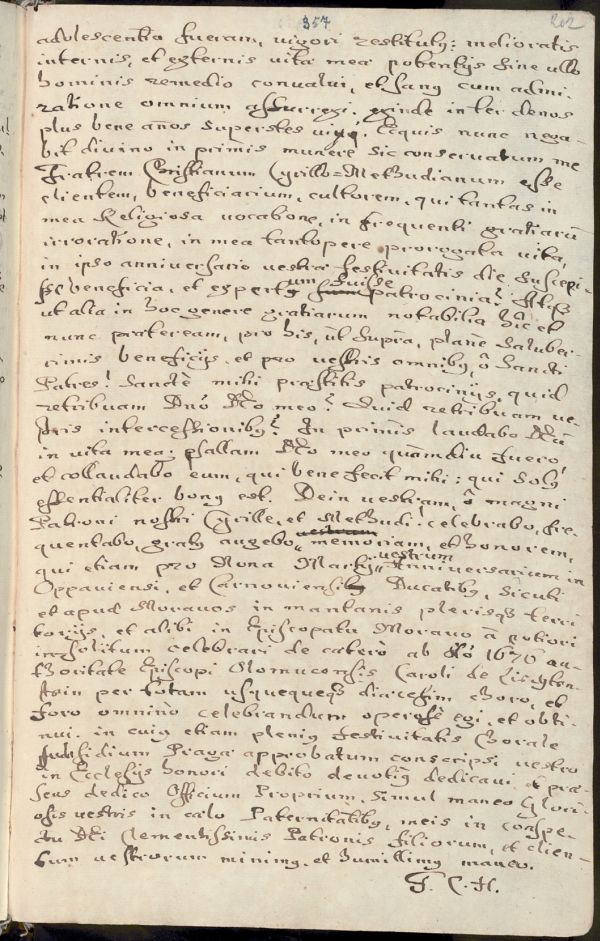 357
202
adolescentia fueram, vigori restitutus: melioratis
internis, et externis vitæ meæ potentijs sine ullo
hominis remedio convalui, et sanus cum admi-
ratione omnium assurrexi, exinde inter denos
plus bene años superstes vixi. Ecquis nunc nega-
bit divino in primis munere sic conservatum me
Fratrem Christianum Cyrillo=Methudianum esse
clientem, beneficiarium, cultorem, qui tantas in
mea Religiosa vocatione, in frequenti gratiarũ
irroratione, in mea tantopere prorogata vita,
in ipso anniversario vestræ festivitatis die suscepi-
sse beneficia, et expertus um fuisse patrocinia? Itaq
ut alia in hoc genere gratiarum notabilia hîc et
nunc præteream, pro his, ut supra, plane saluber-
rimis beneficijs, et pro vestris omnibus, ô Sancti
Patres! Sancte mihi præstitis patrocinijs, quid
retribuam Dño Deo meo? Quid retribuam ve-
stris intercessionibus? In primis laudabo Deũ
in vita mea; psallam Deo meo quamdiu fuero,
et collaudabo eum, qui bene fecit mihi: qui solus
essentialiter bonus est. Dein vestram, ô magni
Patroni nostri Cyrille, et Methudi! celebrabo, fre-
quentabo, gratus augebo memoriam, et honorem,
qui etiam pro Nona Martij vestrum Anniversarium in
Oppaviensi, et Carnoviensibus Ducatibus, sicuti
et apud Moravos in montanis plerisq terri-
torijs, et alibi in Episcopatu Moravo â potiori
insolitum celebrari de cætero ab Ao 1676 au-
thoritate Episcopi Olomucensis Caroli de Liechten-
stein per totam usquequaq diæcesim choro, et
foro omnino celebrandum operose egi, et obti-
nui. in cuius etiam plenius festivitatis chorale
subsidium Pragæ approbatum conscripsi vestro
in Ecclesijs honori debito devotius dedicavi, et præ-
sens dedico Officium Proprium. Simul maneo Glori-
osis vestris in cælo Paternitatibus, meis in conspe-
ctu Dei clementissimis Patronis filiorum, et clien-
tum vestrorum minimus, et humillimus maneo.
F. C. H.